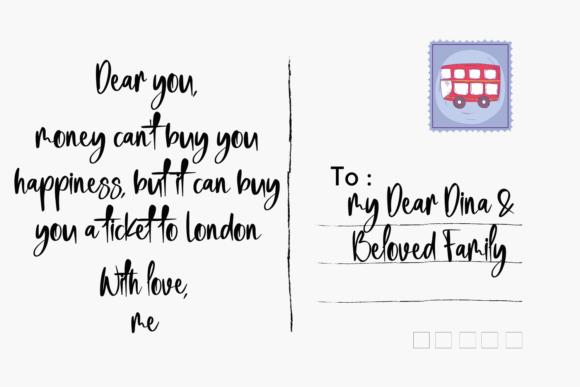 Dear you,
money can't buy you
happiness, but it can buy
you a ticket to London
With love,
me
To :
my Dear Dina &
Beloved Family